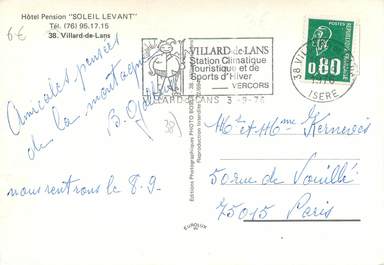 Hôtel Pension "SOLEIL LEVANT"
Tél. (76) 95.17.15
38. Villard-de-Lans
6€
Amicales pensées
de la montagne
B.
nous rentrons le 8.9.
38)
VILLARD-de-LANS
Station Climatique
Touristique et de
Sports d'Hiver
VERCORS
VILLARD-LANS 3-9-76
38 VIL
ISERE
POSTES
0,80
REPUBLIQUE FRANÇAISE
Editions Photographiques PHOTO
Reproduction interdite
EUROLUX
Mr et Mme Kernevès
50 rue de Vouillé
75015 Paris